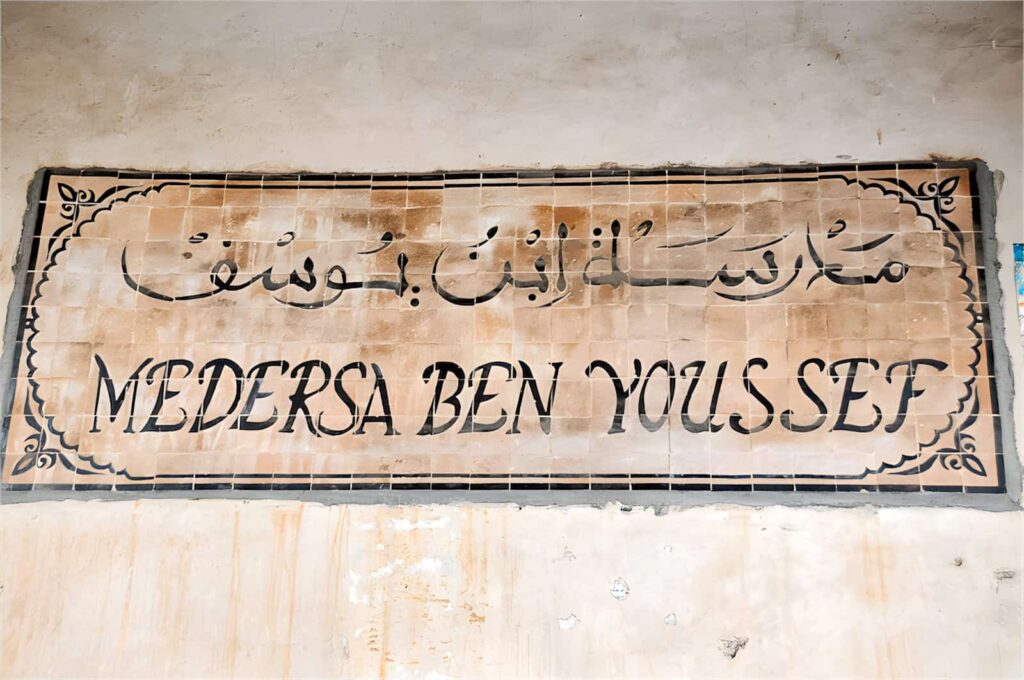 مَدْرَسَة ابْن يُوسف
MEDERSA BEN YOUSSEF